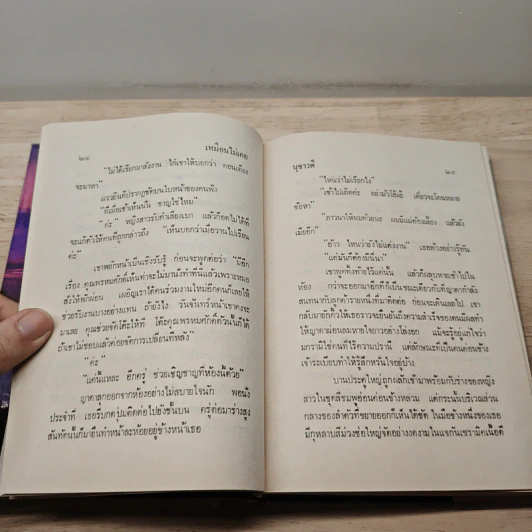 ๒๘
เหมือนไม่เคย
"ไม่ได้เรียกมาสั่งงาน ไก่เขาให้บอกว่า ตอนเที่ยง
จะมาหา"
แววยินดีปรากฏชัดบนใบหน้าของคนฟัง
"ที่เมื่อเช้าเห็นนั่น ชาญใช่ไหม"
"ค่ะ" หญิงสาวรับคำเสียงเบา แล้วก็อดไม่ได้ที่
จะแก้ตัวให้คนที่ถูกกล่าวถึง "เห็นบอกว่าเมื่อวานไปเรียน
ค่ะ"
เขาพยักหน้าเป็นเชิงรับรู้ ก่อนจะพูดต่อว่า "มีอีก
เรื่อง คุณพรหมศักดิ์ที่เห็นท่าจะไม่มานั่งทำที่นี่แล้วเพราะหมอ
สั่งให้พักผ่อน เผอิญเราได้คนร่วมงานใหม่อีกคนก็เลยให้
ช่วยรับงานบางอย่างแทน ถ้ายังไง วันจันทร์หน้าเขาคงจะ
มาเลย คุณช่วยจัดโต๊ะให้ที โต๊ะคุณพรหมศักดิ์ตัวนั้นก็ได้
ถ้าเขาไม่ชอบแล้วค่อยจัดการเปลี่ยนทีหลัง"
"ค่ะ"
"แค่นี้แหละ อีกครู่ ช่วยเชิญชาญที่ห้องนี้ด้วย"
ญาดาลุกออกจากห้องอย่างไม่สบายใจนัก พอนั่ง
ประจำที่ เธอรีบกดปุ่มติดต่อไปยังชั้นบน ครู่ต่อมาร่างสูง
สันทัดนั้นก็มายืนทำหน้าละห้อยอยู่ข้างหน้าเธอ
นุชาวดี
๒๙
"ไหนว่าไม่เรียกไง"
"เข้าไปเถิดค่ะ อย่ามัวโอ้เอ้ เดี๋ยวจะโดนหลาย
ข้อหา"
"ภาวนาให้ผมด้วยนะ ผมมีแม่ต้องเลี้ยง แล้วยัง
เมียอีก"
"อ้าว ไหนว่ายังไม่แต่งงาน" เธอท้วงอย่างรู้ทัน
"แต่มันก็ต้องมีน่า"
เขาพูดทิ้งท้ายไว้แค่นั้น แล้วก็ผลุบหายเข้าไปใน
ห้อง กว่าจะออกมาอีกทีก็เป็นขณะเดียวกับที่ญาดากำลัง
สนทนากับลูกค้ารายหนึ่งที่มาติดต่อ ก่อนจะเดินเลยไป เขา
กลับมายักคิ้วให้เธอราวจะยืนยันถึงความสำเร็จของตนมีผลทำ
ให้ญาดาผ่อนลมหายใจยาวอย่างโล่งอก แม้จะรู้อยู่แก่ใจว่า
มกรามิใช่คนที่ไร้ความปรานี แต่ลักษณะที่เป็นคนค่อนข้าง
เจ้าระเบียบทำให้รู้สึกหวั่นใจอยู่บ้าง
บานประตูใหญ่ถูกผลักเข้ามาพร้อมกับร่างของหญิง
สาวในชุดสีชมพูอ่อนค่อนข้างหลวม แต่กระนั้นบริเวณส่วน
กลางของลำตัวที่ขยายออกก็เห็นได้ชัด ในมือข้างหนึ่งของเธอ
มีกุหลาบสีม่วงช่อใหญ่จัดอย่างงดงามในแจกันเซรามิคเนื้อดี